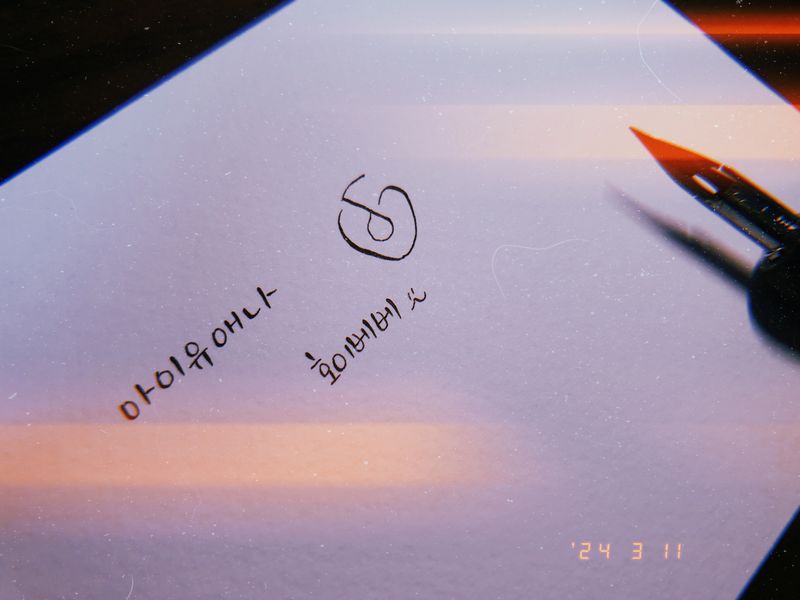 아이유애나
호이베베
'24 3 11